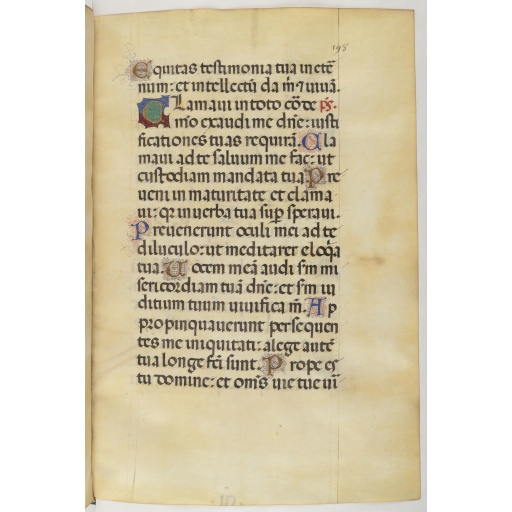 195
Equitas testimonia tua in etē
num: et intellectū da m̄ ⁊ uiuā.
Clamaui in toto cōde p̄s.
m̄o exaudi me dn̄e: iusti
ficationes tuas requirā. Cla
maui ad te saluum me fac: ut
custodiam mandata tua. Pre
ueni in maturitate et clama
ui: q̄ in uerba tua sup̄ speraui.
Preuenerunt oculi mei ad te
diluculo: ut meditarer eloq̄a
tua. Uocem meā audi s̄m mi
sericordiam tuā dn̄e: et s̄m iu
ditium tuum uiuifica m̄. Ap
propinquauerunt persequen
tes me iniquitati: a lege autē
tua longe fc̄i sunt. Prope es
tu domine: et omīs uie tue ūi